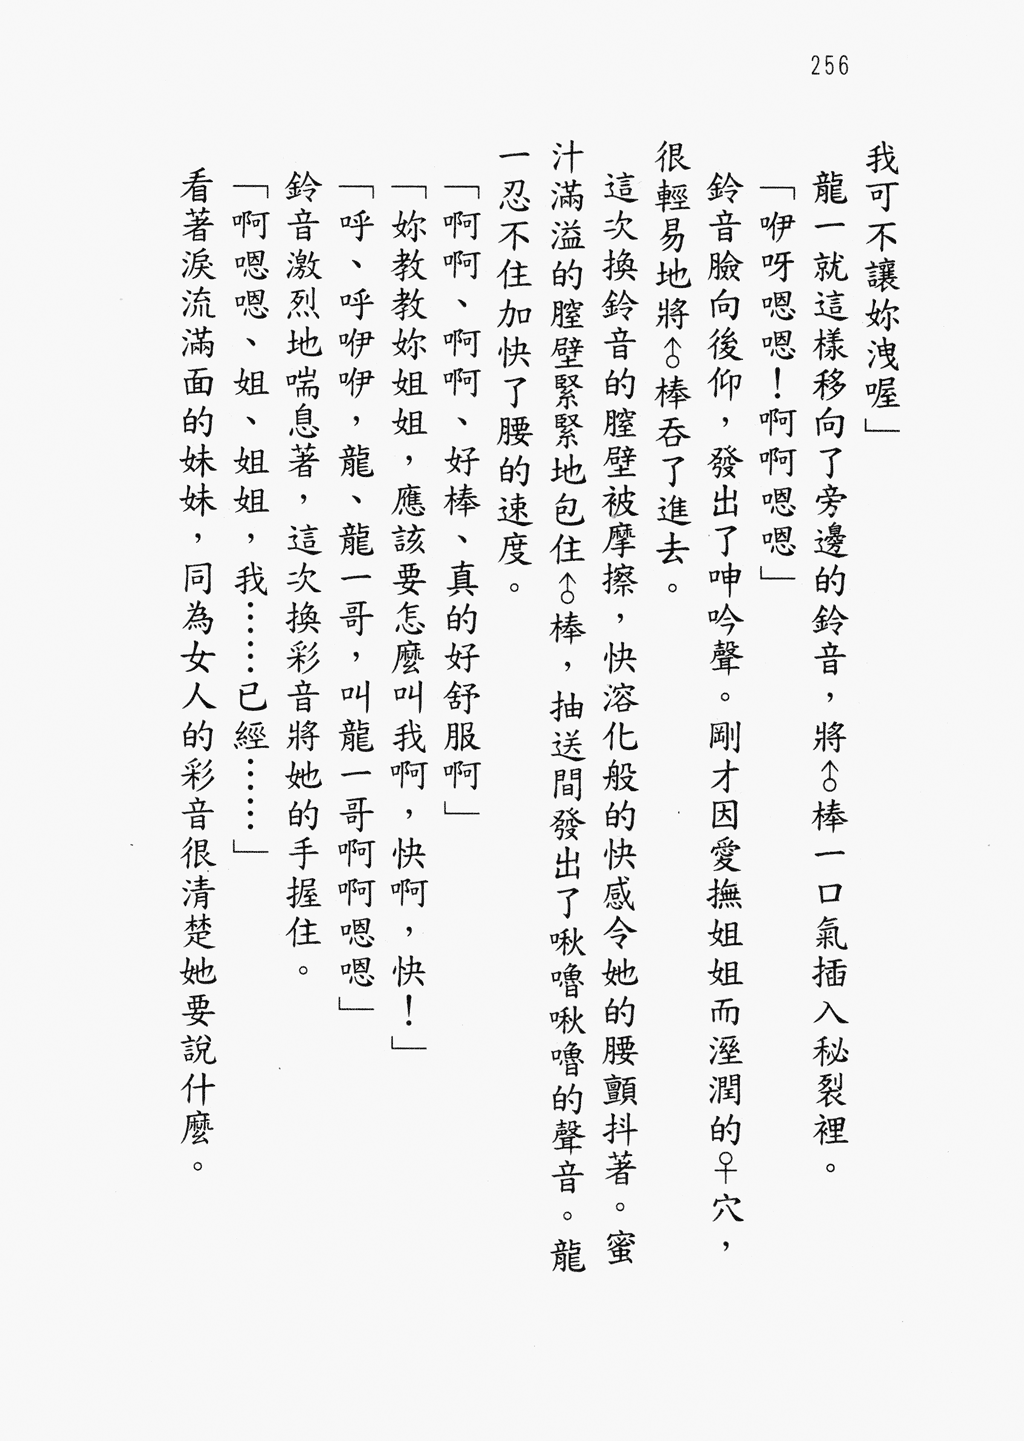 256
我可不讓妳洩喔」
龍一就這樣移向了旁邊的鈴音，將♂棒一口氣插入秘裂裡。
「咿呀嗯嗯！啊啊嗯嗯」
鈴音臉向後仰，發出了呻吟聲。剛才因愛撫姐姐而溼潤的♀穴，
很輕易地將♂棒吞了進去。
這次換鈴音的膣壁被摩擦，快溶化般的快感令她的腰顫抖著。蜜
汁滿溢的膣壁緊緊地包住♂棒，抽送間發出了啾嚕啾嚕的聲音。龍
一忍不住加快了腰的速度。
「啊啊、啊啊、好棒、真的好舒服啊」
「妳教教妳姐姐，應該要怎麼叫我啊，快啊，快！」
「呼、呼咿咿，龍、龍一哥，叫龍一哥啊啊嗯嗯」
鈴音激烈地喘息著，這次換彩音將她的手握住。
「啊嗯嗯、姐、姐姐，我……已經……」
看著淚流滿面的妹妹，同為女人的彩音很清楚她要說什麼。